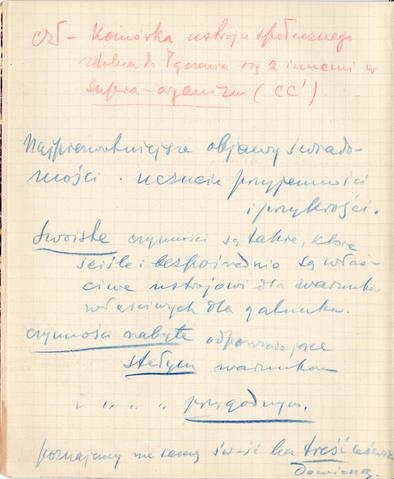 czł - Komórka ustroju społecznego
zdolna do łączenia się z innemi w
supra-organizm (CC')
Najpierwotniejsze objawy świado-
mości. uczucie przyjemności
i przykrości.
Swoiste czynności są takie, które
ściśle i bezpośrednio są właś-
ciwe ustrojowi dla warunków
właściwych dla gatunku.
czynności nabyte odpowiadające
stałym warunkom
i " " " przygodnym.
poznajemy nie samą św-ść lecz treść